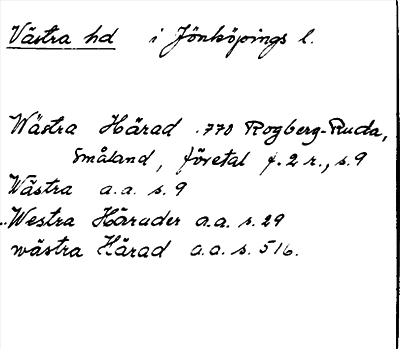 Västra hd i Jönköpings l.
Wästra Härad .770 Rogberg-Ruda,
Småland, företal f. 2 r., s. 9
Wästra a.a. s. 9
..Westra Häruder a.a. s. 29
wästra Härad a.a. s. 516.